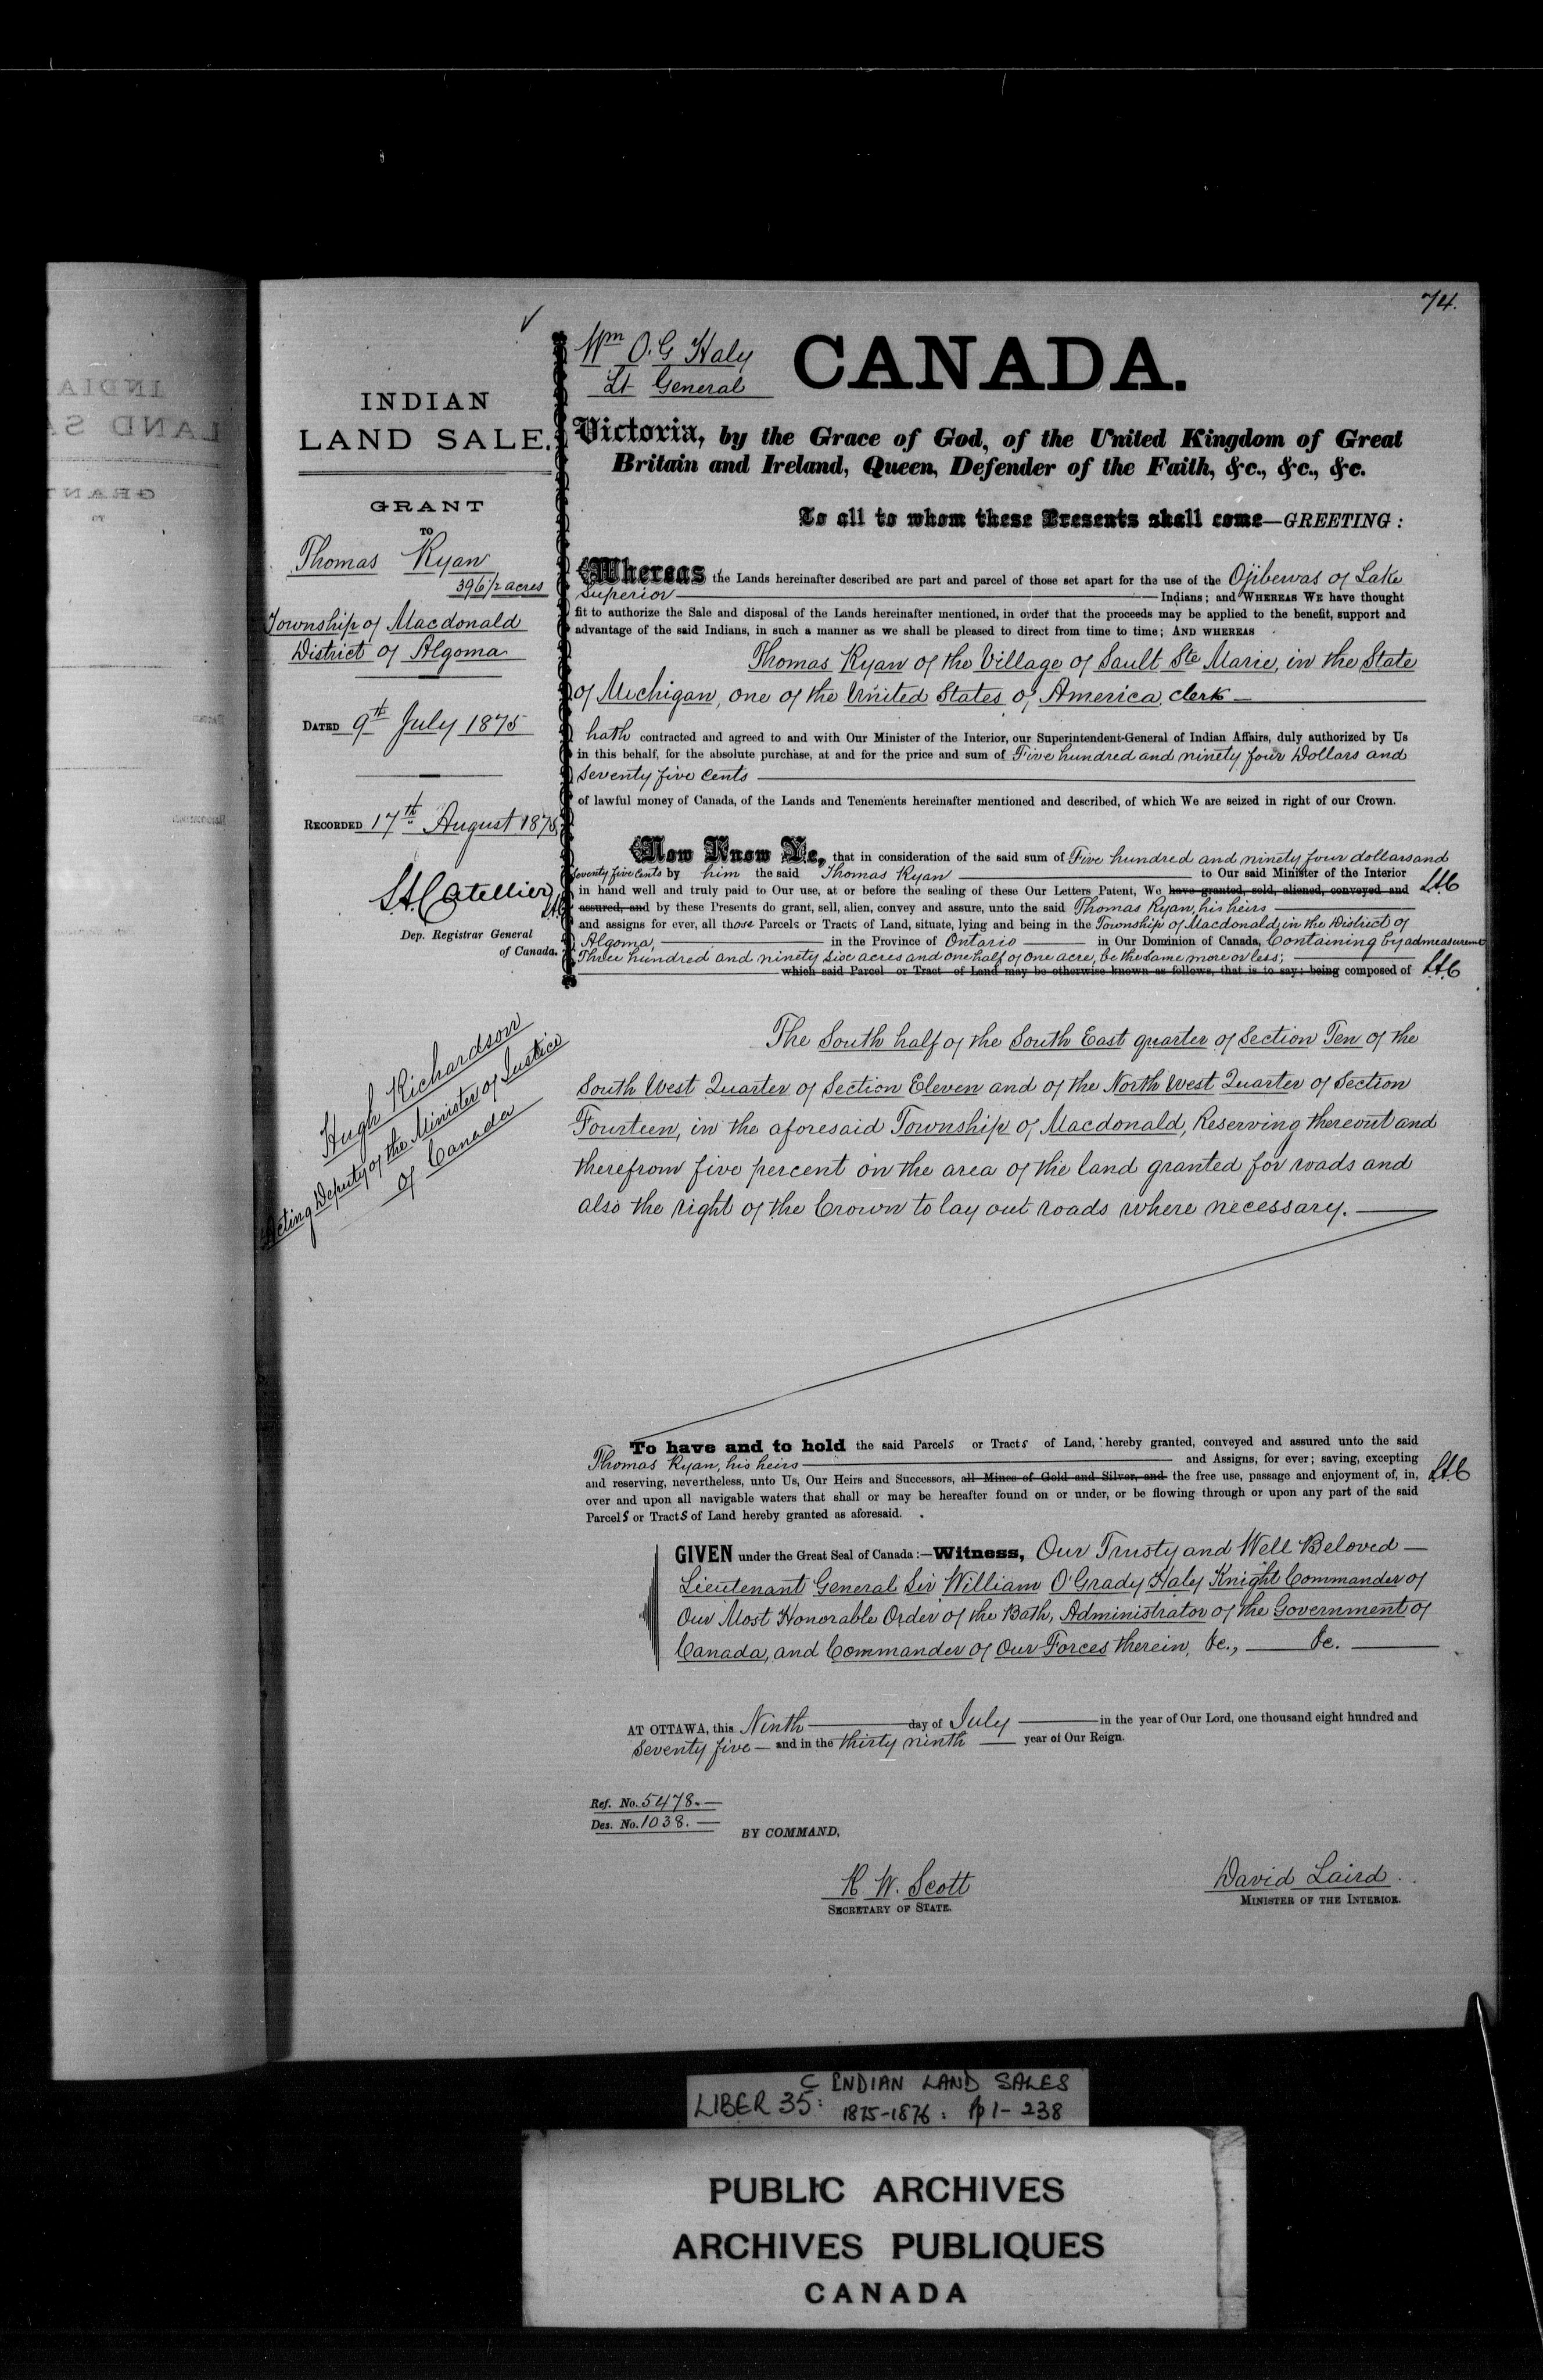 74.
Wm O. G Haly
Lt General
CANADA.
INDIAN
LAND SALE.
GRANT
TO
Thomas Ryan
396 1/2 acres
Township of Macdonald
District of Algoma
DATED 9th July 1875
RECORDED 17th August 1875
Dep. Registrar General
of Canada.
Hugh Richardson
Acting Deputy of the Minister of Justice
of Canada
Victoria, by the Grace of God, of the United Kingdom of Great
Britain and Ireland, Queen, Defender of the Faith, &c., &c., &c.
To all to whom these Presents shall come—GREETING:
Whereas the Lands hereinafter described are part and parcel of those set apart for the use of the Ojibewas of Lake
Superior Indians; and WHEREAS WE have thought
fit to authorize the Sale and disposal of the Lands hereinafter mentioned, in order that the proceeds may be applied to the benefit, support and
advantage of the said Indians, in such a manner as we shall be pleased to direct from time to time; AND WHEREAS
Thomas Ryan of the Village of Sault Ste Marie, in the State
of Michigan, one of the United States of America, clerk
hath contracted and agreed to and with Our Minister of the Interior, our Superintendent-General of Indian Affairs, duly authorized by Us
in this behalf, for the absolute purchase, at and for the price and sum of Five hundred and ninety four Dollars and
seventy five cents
of lawful money of Canada, of the Lands and Tenements hereinafter mentioned and described, of which We are seized in right of our Crown.
Now Know Ye, that in consideration of the said sum of Five hundred and ninety four dollars and
seventy five cents by him the said Thomas Ryan to Our said Minister of the Interior
in hand well and truly paid to Our use, at or before the sealing of these Our Letters Patent, We have granted, sold, aliened, conveyed and
assured, and by these Presents do grant, sell, alien, convey and assure, unto the said Thomas Ryan, his heirs
and assigns for ever, all those Parcels or Tracts of Land, situate, lying and being in the Township of Macdonald, in the District of
Algoma, in the Province of Ontario in Our Dominion of Canada, Containing by admeasurement
Three hundred and ninety six acres and one half of one acre, be the same more or less;
which said Parcel or Tract of Land may be otherwise known as follows, that is to say: being composed of
The South half of the South East quarter of Section Ten of the
South West Quarter of Section Eleven and of the North West Quarter of Section
Fourteen, in the aforesaid Township of Macdonald, Reserving thereout and
therefrom five percent on the area of the land granted for roads and
also the right of the Crown to lay out roads where necessary.
To have and to hold the said Parcels or Tracts of Land, hereby granted, conveyed and assured unto the said
Thomas Ryan, his heirs and Assigns, for ever; saving, excepting
and reserving, nevertheless, unto Us, Our Heirs and Successors, all Mines of Gold and Silver, and the free use, passage and enjoyment of, in,
over and upon all navigable waters that shall or may be hereafter found on or under, or be flowing through or upon any part of the said
Parcels or Tracts of Land hereby granted as aforesaid.
GIVEN under the Great Seal of Canada:—Witness, Our Trusty and Well Beloved —
Lieutenant General Sir William O'Grady Haly Knight Commander of
Our Most Honorable Order of the Bath, Administrator of the Government of
Canada, and Commander of Our Forces therein, &c., — &c.
AT OTTAWA, this Ninth day of July in the year of Our Lord, one thousand eight hundred and
seventy five — and in the thirty ninth year of Our Reign.
Ref. No. 5478.—
Des. No. 1038.—
BY COMMAND,
R. W. Scott
SECRETARY OF STATE.
David Laird
MINISTER OF THE INTERIOR.
LIBER 35: C INDIAN LAND SALES
1875-1876: pp 1-238
PUBLIC ARCHIVES
ARCHIVES PUBLIQUES
CANADA